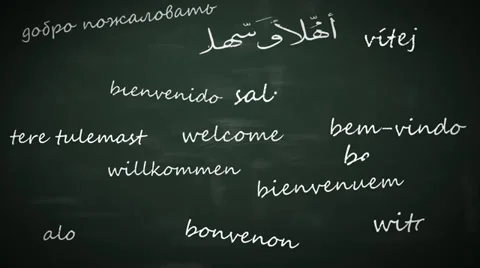 добро пожаловать
أهلاً وسهلا
vítej
bienvenido
sal
tere tulemast
welcome
bem-vindo
willkommen
bienvenuem
alo
bonvenon